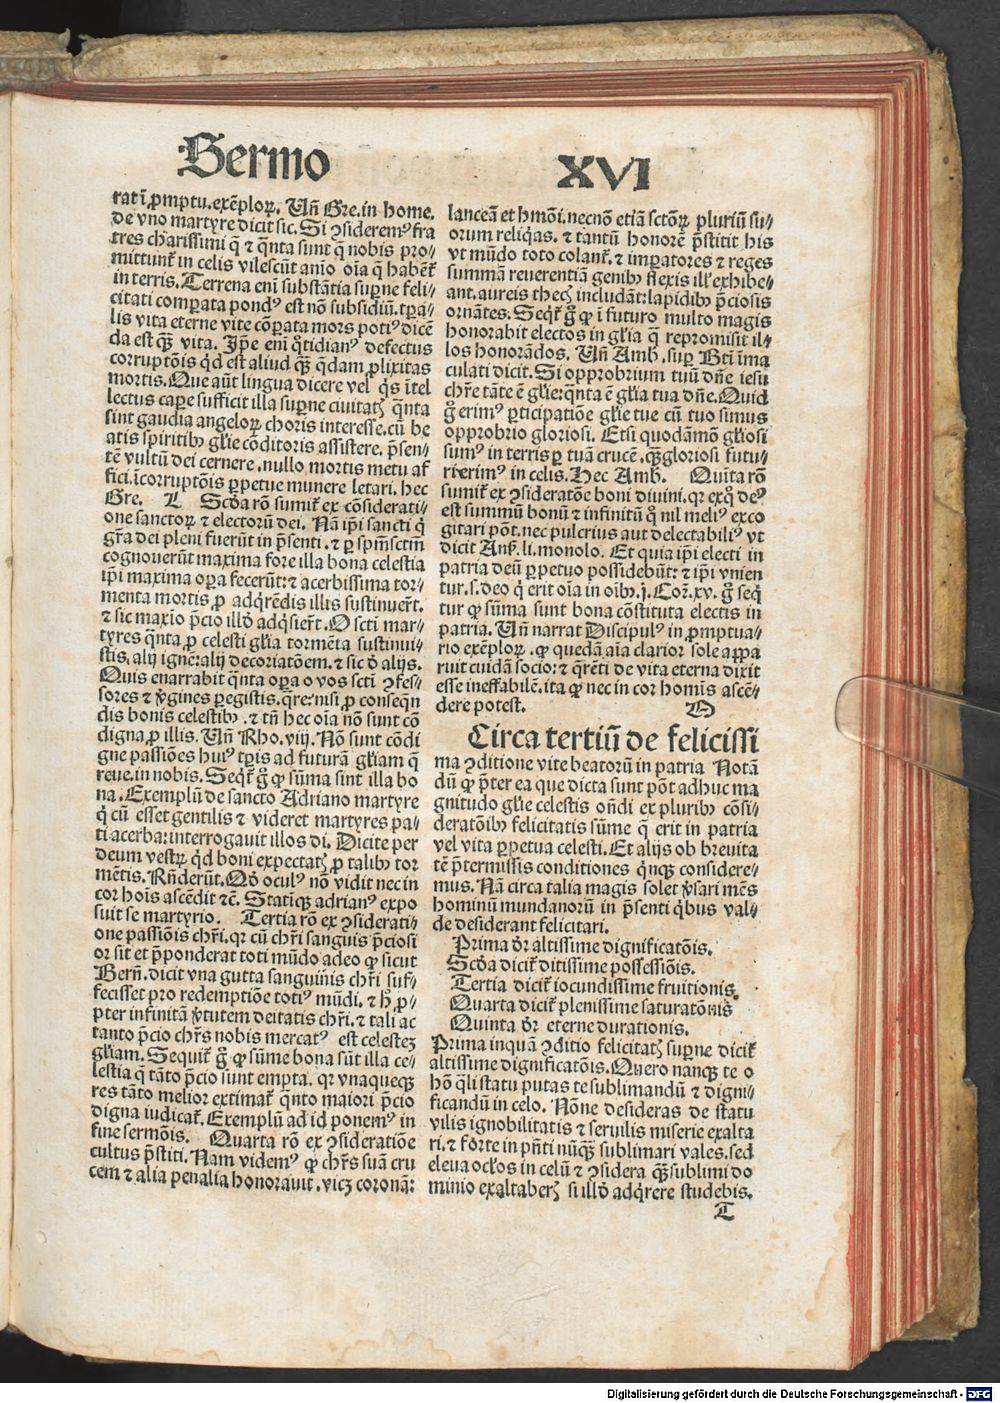 Sermo XVI
rat ī ꝓmptu. exēploꝝ. Uñ Gre. in home.
de vno martyre dicit sic. Si ꝯsideremꝰ fra
tres charissimi q̄ ⁊ q̄nta sunt q̄ nobis pro-
mittunt᷑ in celis vilescūt aīo oīa q̄ habēt᷑
in terris. Terrena enī substātia suꝑne feli-
citati comparata pondꝰ est nō subsidiū. tꝑa-
lis vita eterne vite cōparata mors potiꝰ dicē
da est qȝ̄ vita. Ip̄e enī q̄tidianꝰ defectus
corruptōis qͥd est aliud qȝ̄ q̄dam ꝓlixitas
mortis. Que aūt lingua dicere vel qͥs ītel
lectus caꝑe sufficit illa suꝑne ciuitatꝭ q̄nta
sint gaudia angeloꝝ choris interesse. cū be
atis spiritibꝫ glīe cōditoris assistere. p̄sen-
tē vultū dei cernere. nullo mortis metu af
fici. īcorruptōis ꝑpetue munere letari. hec
Gre. L Scd̓a rō sumit᷑ ex cōsiderati-
one sanctoꝝ ⁊ electorū dei. Nā ip̄i sancti qͥ
gr̄a dei pleni fuerūt in p̄senti. ⁊ ꝑ sp̄m sctm̄
cognouerūt maxima fore illa bona celestia
ip̄i maxima oꝑa fecerūt: ⁊ acerbissima tor-
menta mortis ꝓ adqͥrēdis illis sustinuer̄t.
⁊ sic maxīo p̄cio illd̓ adqͥsier̄t. O scti mar-
tyres q̄nta ꝓ celesti gl̄ia tormēta sustinui-
stis. alij ignē: alij decoriatōem. ⁊ sic d̓ alijs.
Quis enarrabit q̄nta oꝑa o vos sctī ꝯfes-
sores ⁊ v̓gines ꝑegistis. qͣre: nisi ꝓ conseqn̄
dis bonis celestibꝫ. ⁊ tn̄ hec oīa nō sunt cō
digna ꝓ illis. Uñ Rho. viij. Nō sunt cōdi
gne passiōes huiꝰ tꝑis ad futurā gl̄iam q̄
reue. in nobis. Seqͥt᷑ gͦ ꝙ sūma sint illa bo
na. Exemplū de sancto Adriano martyre
qͥ cū esset gentilis ⁊ videret martyres pa-
ti acerba: interrogauit illos di. Dicite per
deum vestꝝ qͥd boni expectatꝭ ꝓ talibꝫ tor
mētis. Rn̄derūt. Qd̓ oculꝰ nō vidit nec in
cor hoīs ascēdit ⁊cē. Statiqȝ adrianꝰ expo
suit se martyrio. Tertia rō ex ꝯsiderati-
one passiōis chr̄i. qꝛ cū chr̄i sanguis p̄ciosi
or sit et p̄ponderat toti mūdo adeo ꝙ sicut
Bern̄. dicit vna gutta sanguinis chr̄i suf-
fecisset pro redemptiōe totiꝰ mūdi. ⁊ hͦ ꝓ-
pter infinitā v̓tutem deitatis chr̄i. ⁊ tali ac
tanto p̄cio chr̄s nobis mercatꝰ est celesteꝫ
gl̄iam. Sequit᷑ gͦ ꝙ sūme bona sūt illa ce-
lestia q̄ tāto p̄cio sunt empta. qꝛ vnaqueqȝ
res tāto melior extimat᷑ q̄nto maiori p̄cio
digna iudicat᷑. Exemplū ad id ponemꝰ in
fine sermōis. Quarta rō ex ꝯsideratiōe
cultus p̄stiti. Nam videmꝰ ꝙ chr̄s suā cru
cem ⁊ alia penalia honorauit. vicꝫ coronā:
lanceā et hmōi. necnō etiā sctōꝝ pluriū su-
orum reliqͥas. ⁊ tantū honorē p̄stitit his
vt mūdo toto colant᷑. ⁊ imꝑatores ⁊ reges
summā reuerentiā genibꝫ flexis ill᷑ exhibe-
ant. aureis thecꝭ includāt: lapidibꝫ p̄ciosis
ornātes. Seqͥt᷑ gͦ ꝙ ī futuro multo magis
honorabit electos in gl̄ia q̄ repromisit il-
los honorādos. Uñ Amb. suꝑ Bt̄i īma
culati dicit. Si opprobrium tuū dn̄e iesu
chr̄e tāte ē gl̄ie: q̄nta ē gl̄ia tua dn̄e. Quid
gͦ erimꝰ ꝑticipatiōe gl̄ie tue cū tuo simus
opprobrio gloriosi. Etsi quodāmō gl̄iosi
sumꝰ in terris ꝑ tuā crucē. qȝ̄ gloriosi futu-
ri erimꝰ in celis. Hec Amb. Quīta rō
sumit᷑ ex ꝯsideratōe boni diuini. qꝛ ex qͦ deꝰ
est summū bonū ⁊ infinitū qͦ nil meliꝰ exco
gitari pōt. nec pulcrius aut delectabiliꝰ vt
dicit Anß. li. monolo. Et quia ip̄i electi in
patria deū ꝑpetuo possidebūt: ⁊ ip̄i vnien
tur. s. deo qͥ erit oīa in oībꝫ. j. Cor̄. xv. gͦ seqͥ
tur ꝙ sūma sunt bona cōstituta electis in
patria. Uñ narrat Discipulꝰ in ꝓmptua-
rio exēploꝝ. ꝙ quedā aīa clarior sole appa
ruit cuidā socio: ⁊ qͣrēti de vita eterna dixit
esse ineffabilē. ita ꝙ nec in cor homīs ascē-
dere potest. O
Circa tertiū de felicissi
ma ꝯditione vite beatorū in patria Notā
dū ꝙ p̄ter ea que dicta sunt pōt adhuc ma
gnitudo gl̄ie celestis on̄di ex pluribꝫ cōsi-
deratōibꝫ felicitatis sūme q̄ erit in patria
vel vita ꝑpetua celesti. Et alijs ob breuita
tē p̄termissis conditiones qͥnqȝ considere-
mus. Nā circa talia magis solet v̓sari mēs
hominū mundanorū in p̄senti qͥbus val-
de desiderant felicitari.
Prima dr̄ altissime dignificatōis.
Scd̓a dicit᷑ ditissime possessiōis.
Tertia dicit᷑ iocundissime fruitionis.
Quarta dicit᷑ plenissime saturatōnis
Quinta dr̄ eterne durationis.
Prima inquā ꝯditio felicitatꝭ suꝑne dicit᷑
altissime dignificatōis. Quero nanqȝ te o
hō q̄li statu putas te sublimandū ⁊ digni-
ficandū in celo. Nōne desideras de statu
vilis ignobilitatis ⁊ seruilis miserie exalta
ri. ⁊ forte in p̄nti nūqȝ̄ sublimari vales. sed
eleua oc̄los in celū ⁊ ꝯsidera qȝ̄ sublimi do
minio exaltaberꝭ si illd̓ adqͥrere studebis.
T
Digitalisierung gefördert durch die Deutsche Forschungsgemeinschaft - DFG